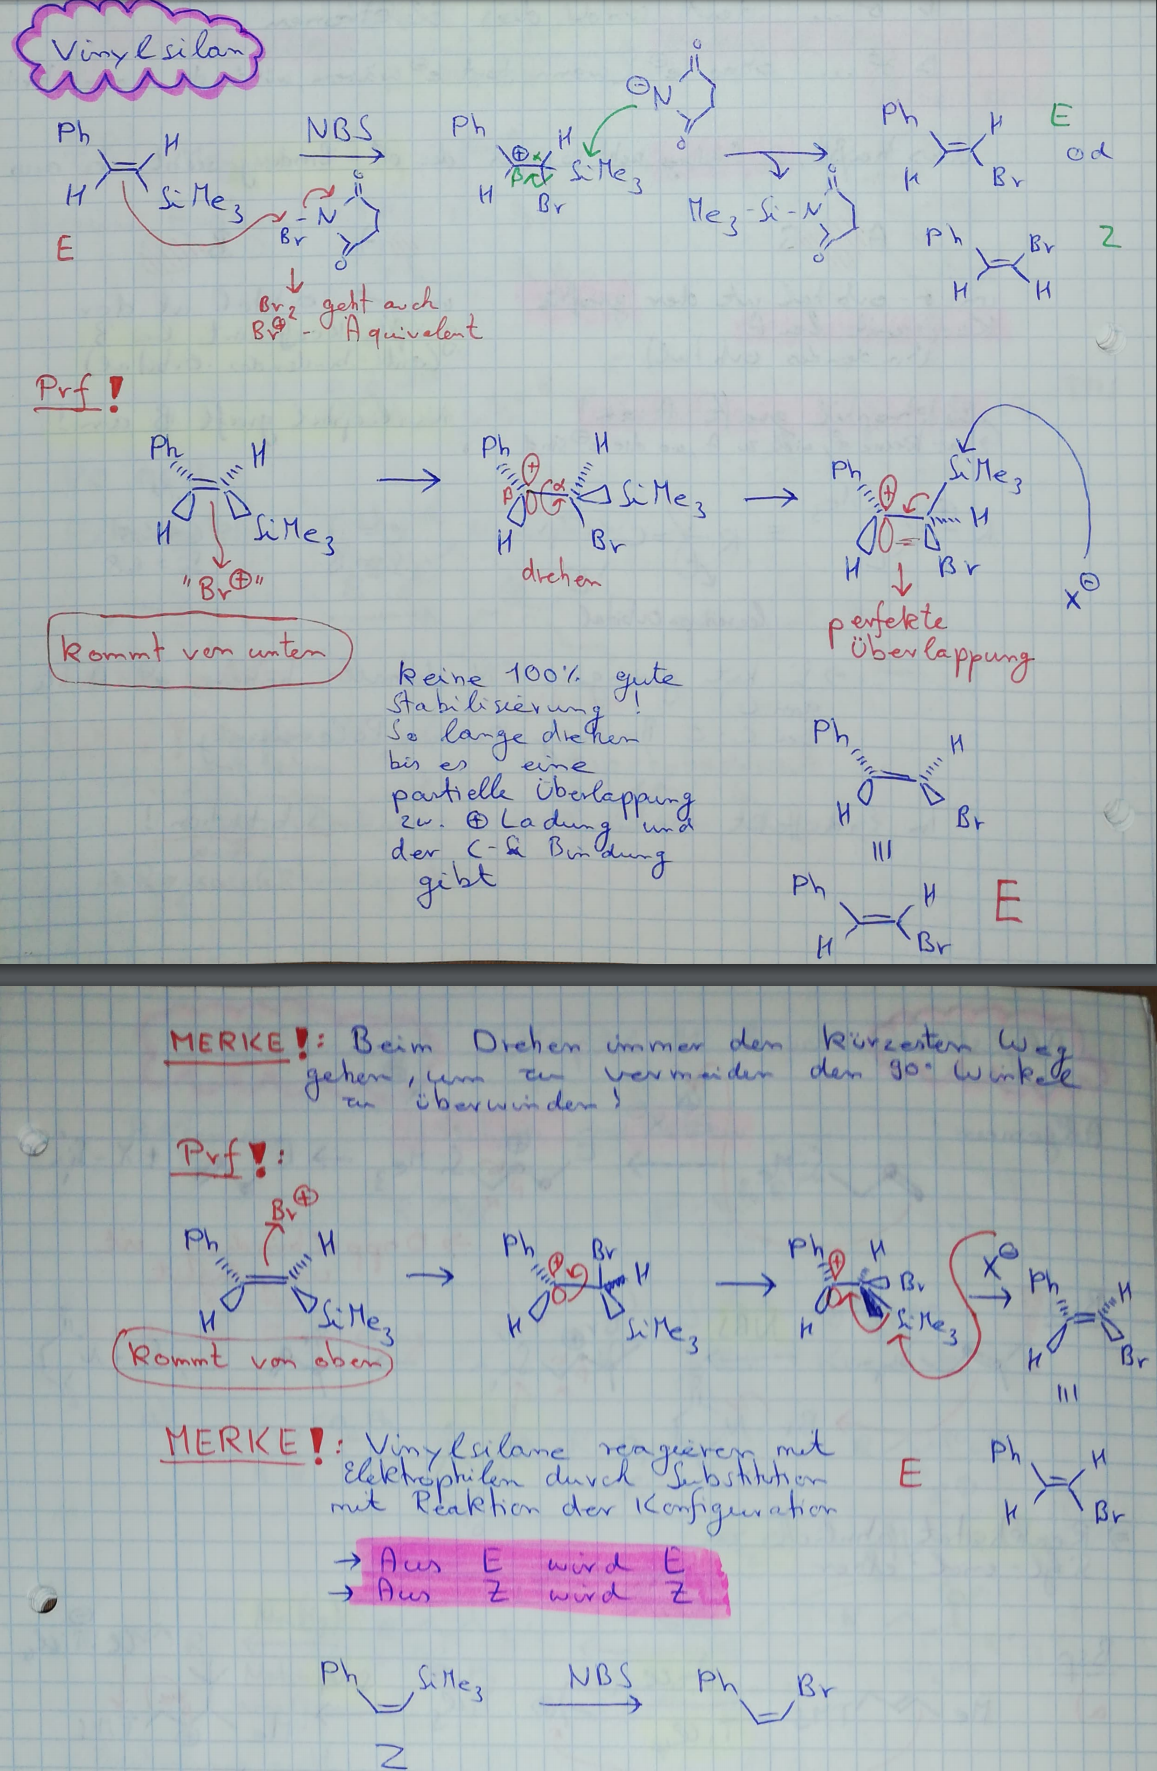 Vinylsilan
Ph
H
H
SiMe3
E
NBS
Br
N
O
O
Br2 geht auch
Br⊕ - Äquivalent
Ph
H
⊕
α
β
H
Br
SiMe3
⊖
N
O
O
Me3-Si-N
O
O
Ph
H
H
Br
E
od
Ph
Br
H
H
Z
Prf!
Ph
H
H
SiMe3
"Br⊕"
kommt von unten
Ph
+
H
β
α
SiMe3
H
Br
drehen
Ph
+
SiMe3
H
H
Br
X⊖
perfekte
Überlappung
keine 100% gute
Stabilisierung!
So lange drehen
bis es eine
partielle Überlappung
zw. ⊕ Ladung und
der C-Si Bindung
gibt
Ph
H
H
Br
III
Ph
H
H
Br
E
MERKE!: Beim Drehen immer den kürzesten Weg
gehen, um zu vermeiden den 90° Winkel
zu überwinden!
Prf!:
Br⊕
Ph
H
H
SiMe3
kommt von oben
Ph
+
Br
H
H
SiMe3
Ph
+
H
Br
H
SiMe3
X⊖
Ph
H
H
Br
III
MERKE!: Vinylsilane reagieren mit
Elektrophilen durch Substitution
mit Reaktion der Konfiguration
E
Ph
H
H
Br
→ Aus E wird E
→ Aus Z wird Z
Ph
SiMe3
NBS
Ph
Br
Z